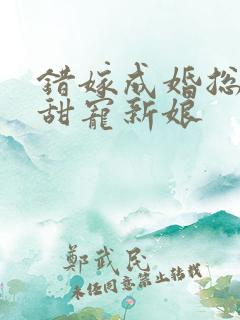 错嫁成婚总
甜宠新娘
鄭武民
未经同意禁止转载